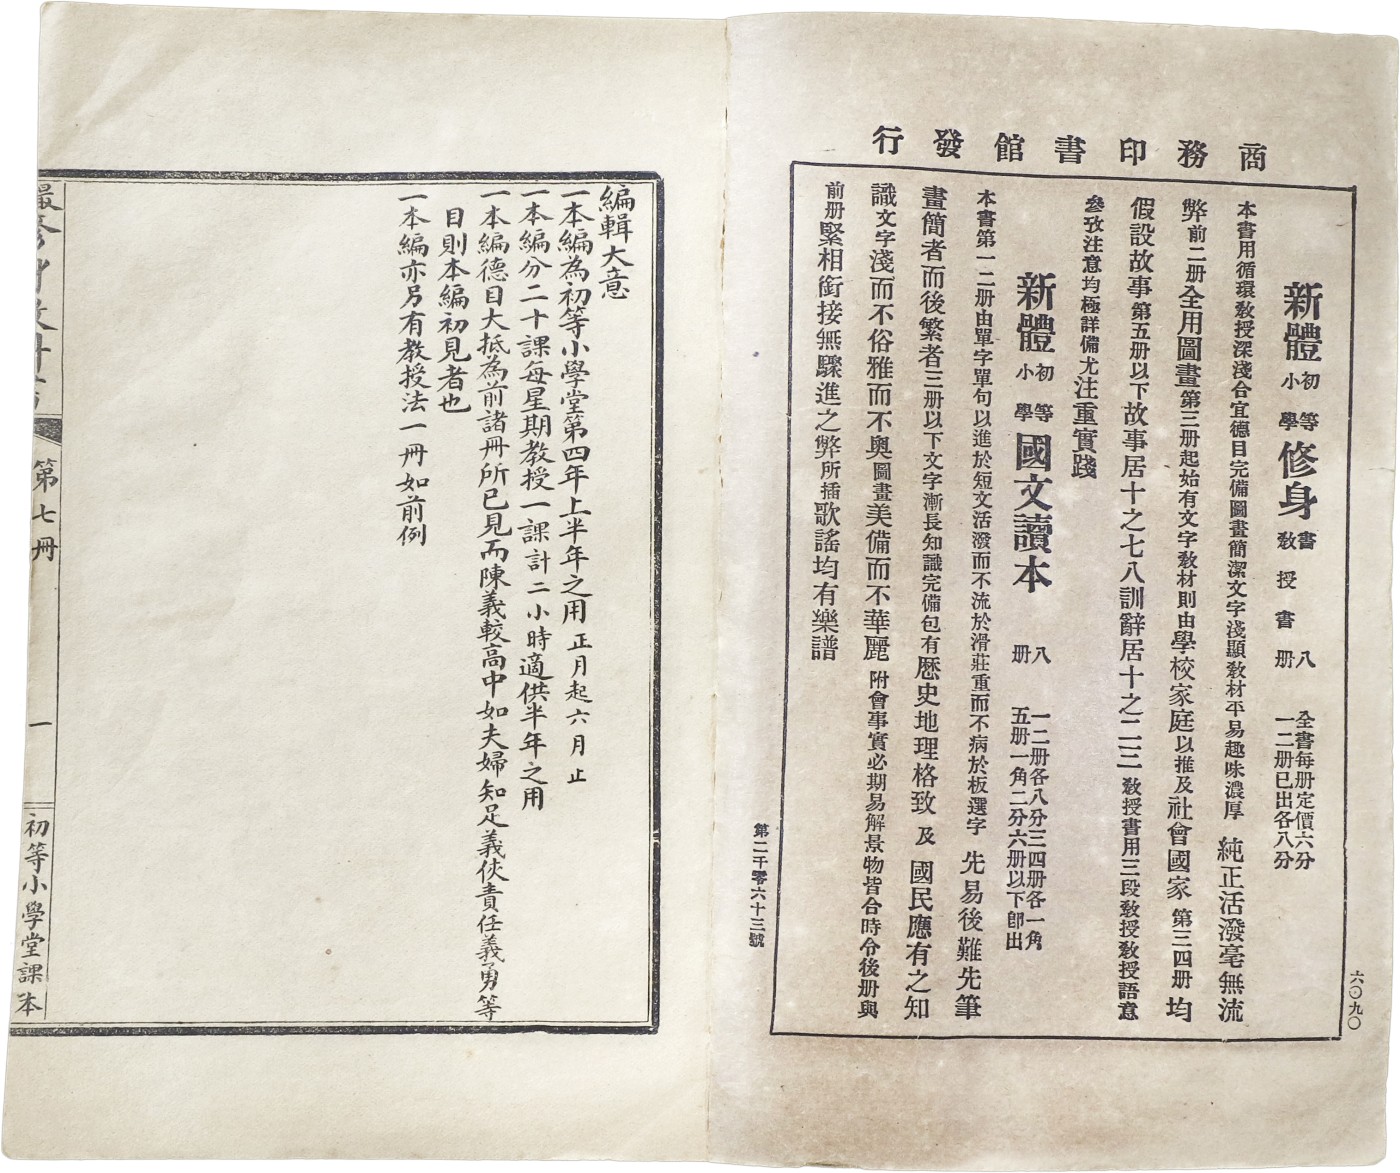 商務印書館發行
新體初等小學修身書教授書八册 全書每册定價六分一二册已出各八分
本書用循環教授深淺合宜德目完備圖畫簡潔文字淺顯教材平易趣味濃厚純正活潑毫無流
弊前二册全用圖畫第三册起始有文字教材則由學校家庭以推及社會國家第三四册均
假設故事第五册以下故事居十之七八訓辭居十之二三教授書用三段教授教授語意
參攷注意均極詳備尤注重實踐
新體初等小學國文讀本八册 一二册各八分三四册各一角五册一角二分六册以下卽出
本書第一二册由單字單句以進於短文活潑而不流於滑莊重而不病於板選字先易後難先筆
畫簡者而後繁者三册以下文字漸長知識完備包有歷史地理格致及國民應有之知
識文字淺而不俗雅而不奧圖畫美備而不華麗附會事實必期易解景物皆合時令後册與
前册緊相銜接無驟進之弊所插歌謠均有樂譜
六〇九〇
第二千零六十三號
編輯大意
一本編為初等小學堂第四年上半年之用正月起六月止
一本編分二十課每星期教授一課計二小時適供半年之用
一本編德目大抵為前諸冊所已見而陳義較高中如夫婦知足義俠責任義勇等
目則本編初見者也
一本編亦另有教授法一冊如前例
最新修身教科書
第七冊
一
初等小學堂課本